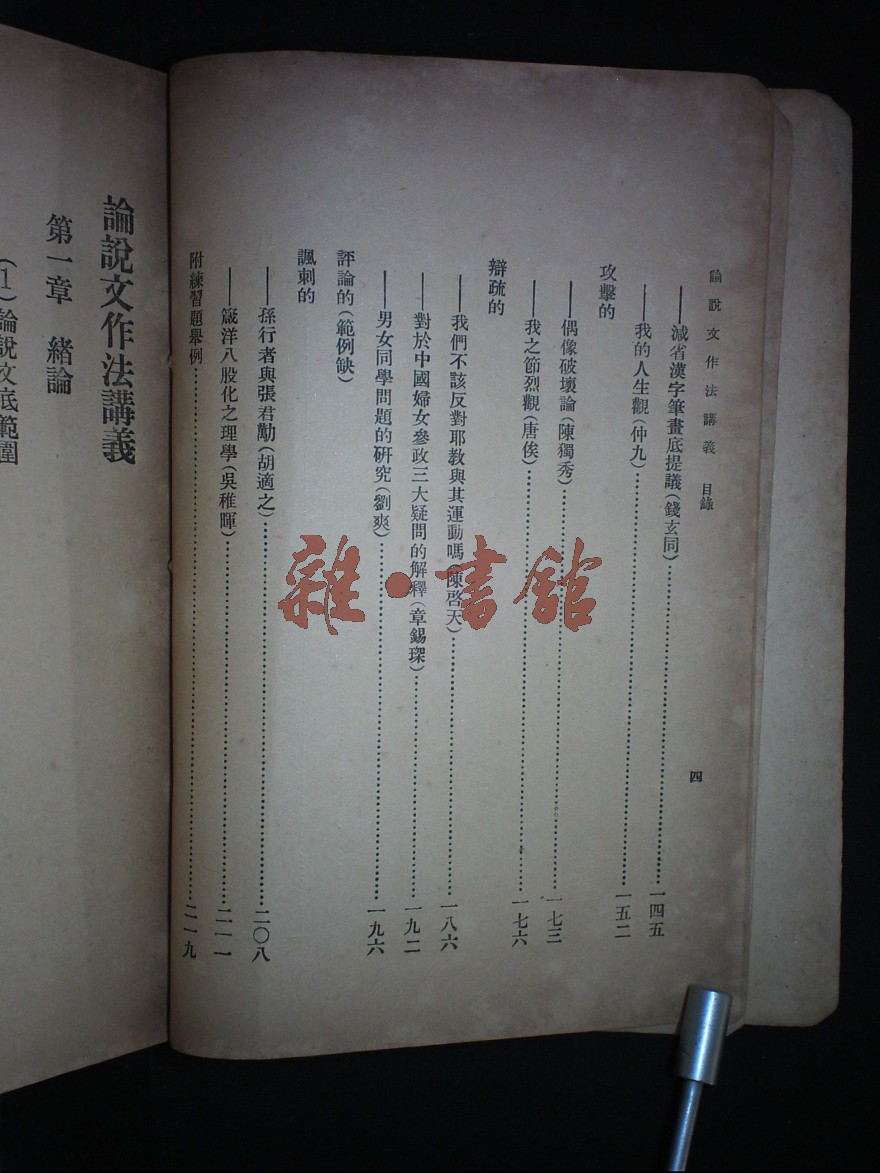 論說文作法講義　目錄
四
——減省漢字筆畫底提議(錢玄同)……一四五
——我的人生觀(仲九)……一五二
攻擊的
——偶像破壞論(陳獨秀)……一七三
——我之節烈觀(唐俟)……一七六
辯疏的
——我們不該反對耶教與其運動嗎(陳啓天)……一八六
——對於中國婦女參政三大疑問的解釋(章錫琛)……一九二
——男女同學問題的研究(劉爽)……一九六
評論的(範例缺)
諷刺的
——孫行者與張君勱(胡適之)……二〇八
——箴洋八股化之理學(吳稚暉)……二一一
附練習題舉例……二一九
論說文作法講義
第一章　緒論
(1)論說文底範圍
雜·書館